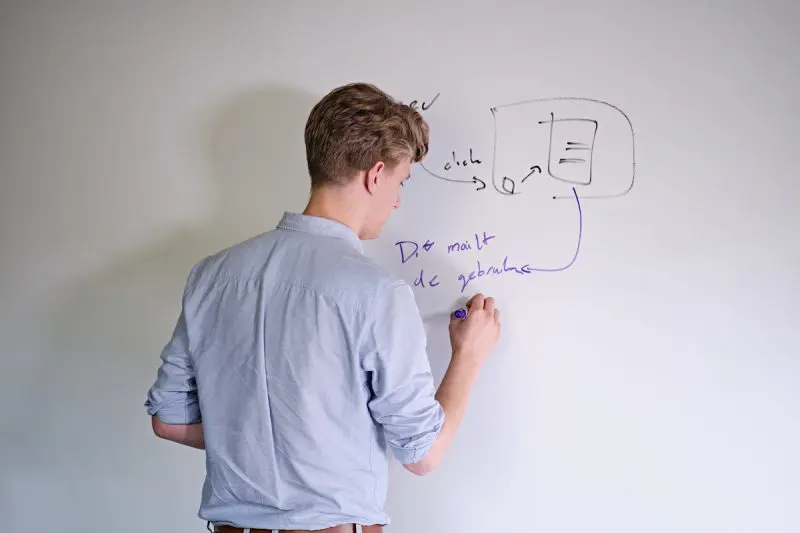 click
Dit mailt
de gebruik